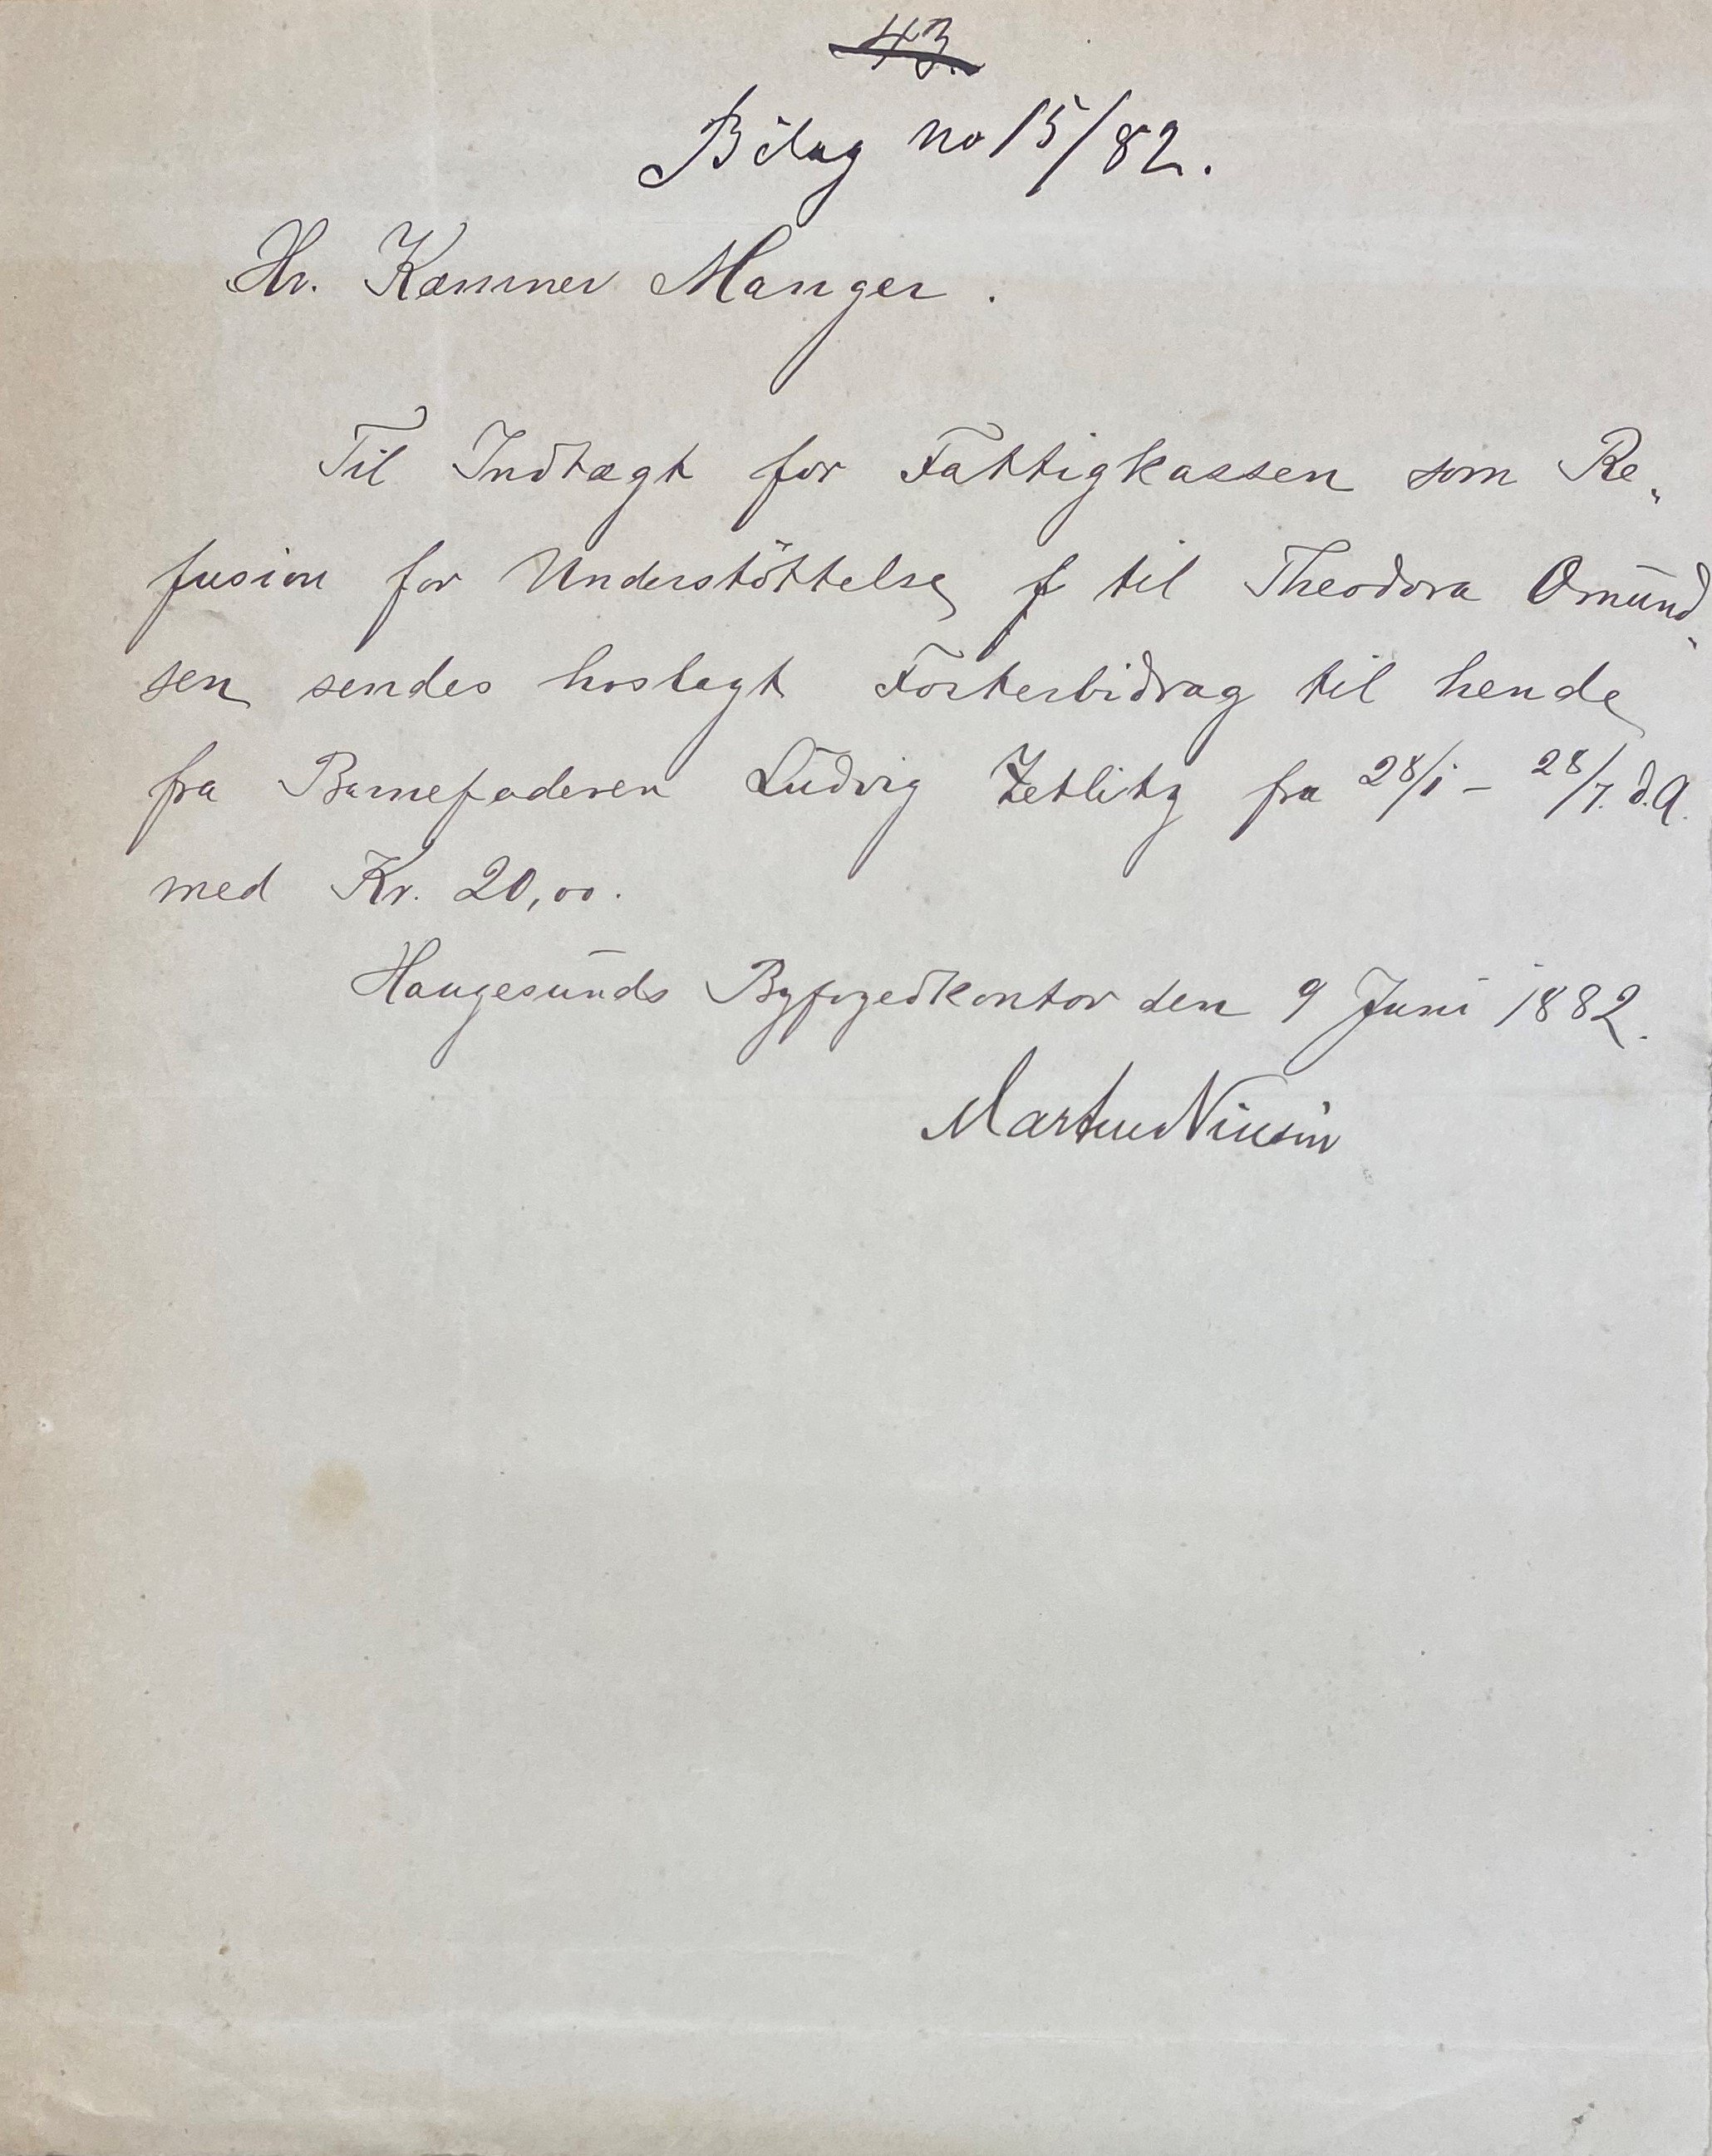 43.
Bilag no 15/82.
Hr. Kæmner Manger.
Til Indtægt for Fattigkassen som Re-
fusion for Understöttelse f til Theodora Omund-
sen sendes hoslagt Fosterbidrag til hende
fra Barnefaderen Ludvig Zetlitz fra 28/1 - 28/7. d.A.
med Kr. 20,00.
Haugesunds Byfogedkontor den 9 Juni 1882.